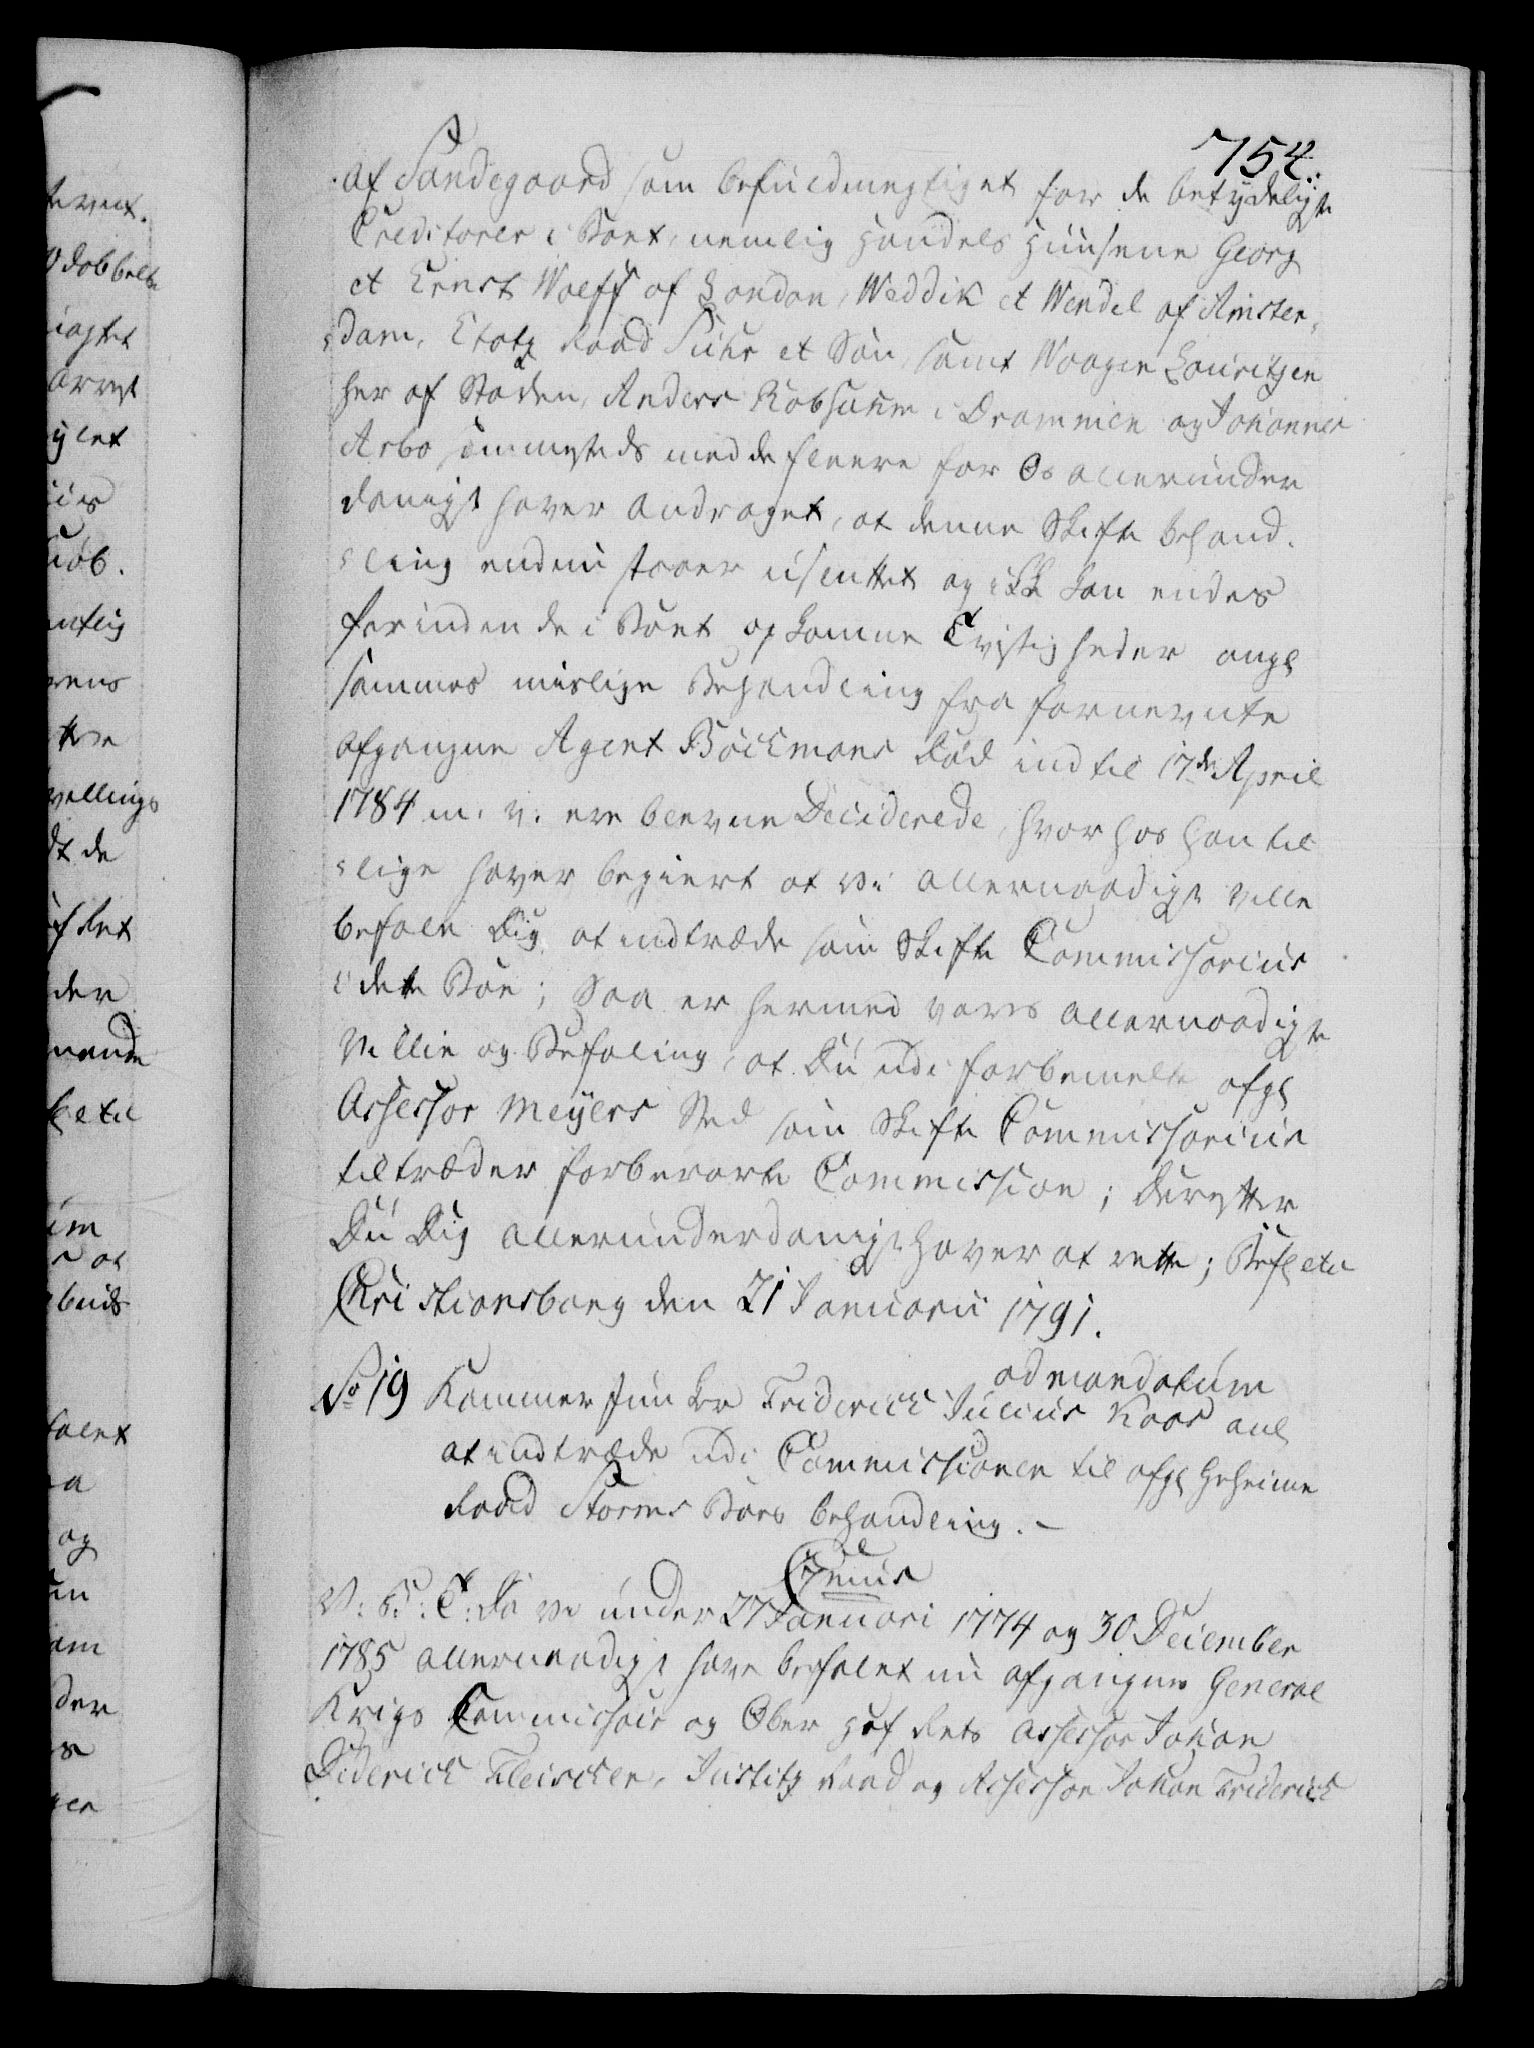 754.
af Sandegaard som befuldmegtiget for de betydeligste
Creditorer i Boet, nemlig Handels Huusene Georg
et Ernst Wolff af London, Weddik et Wendel af Amster-
-dam, Etatz Raad Suhr et Søn, samt Waagen Lauritzen
her af Staden, Anders Kobsuhm i Drammen og Johannes
Arbo sammesteds med de fleere for Os allerunder
danigst haver andraget, at denne Skifte behand-
-ling endnu staaer usluttet og ikke kan endes
forinden de i Boet opkomne Tvistigheder angl
sammes mislige Behandling fra fornevnte
afgangne Agent Böckmans Død indtil 17de April
1784 m. v. ere blevne Deciderede, hvorhos han til
-lige haver begiert at vi allernaadigst ville
befale Dig at indtræde som Skifte Commissarius
i dette Boe; Saa er hermed vores allernaadigste
Villie og Befaling, at Du udi forbemelte afgl
Assessor Meyers Sted som Skifte Commissarius
tiltræder forberørte Commission; Derefter
Du Dig allerunderdanigst haver at rette; Befl etc
Christiansborg den 21 Januarii 1791.
ad mandatum
No 19 Kammer Junker Friderich Julius Kaas anl
at indtræde udi Commissionen til afgl Geheime
Raad Storms Boes behandling. -
C 7mus
V: G: T: Da vi under 27 Januari 1774 og 30 December
1785 allernaadigst have befalet nu afgangne General
Krigs Commissair og Ober Hof Rets Assessor Johan
Diderich Fleischer, Justitz Raad og Assessor Johan Friderich